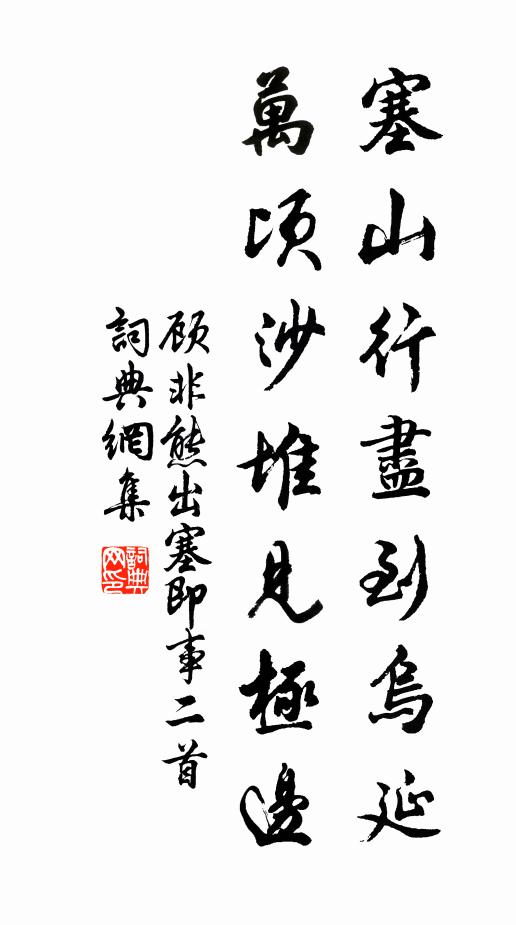 塞山行盡到烏延
萬頃沙堆見極邊
顾非熊出塞即事二首
詞典網集
詞典网印